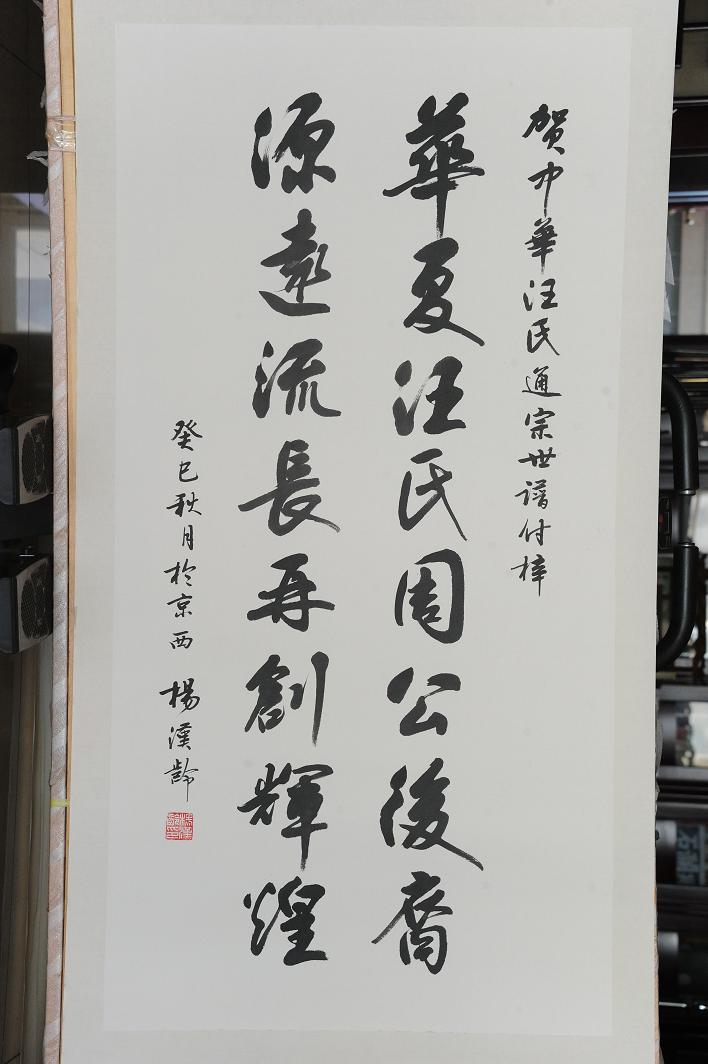 贺中華汪氏通宗世譜付梓
華夏汪氏周公後裔
源遠流長再創輝煌
癸巳秋月於京西 楊漢齡